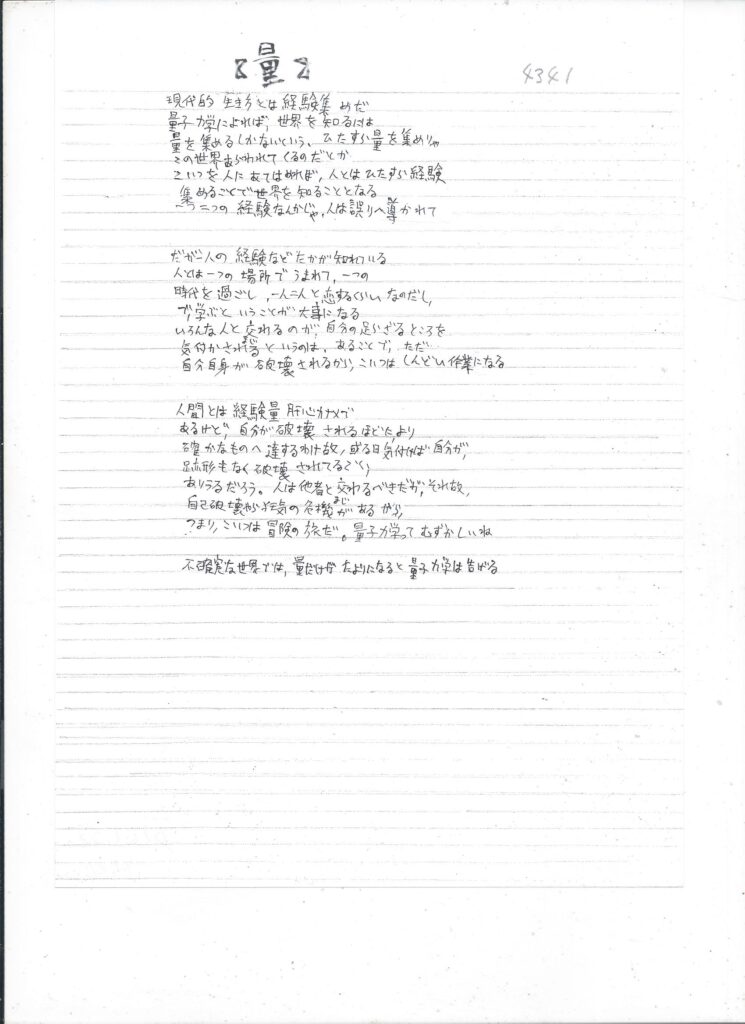 【量】
4341
現代的 生き方とは経験集めだ
量子力学によれば、世界を知るには
量を集めるしかないという、ひたすら量を集めりゃ
この世界あらわれてくるのだとか
こいつを人にあてはめれば、人とはひたすら経験
集めることで世界を知ることとなる
一つ二つの経験なんかじゃ、人は誤りへ導かれて
だが一人の経験などたかが知れている
人とは一つの場所でうまれて、一つの
時代を過ごし、一人二人と恋するくらい、なのだし、
で、学ぶということが大事になる
いろんな人と交わるのが、自分の足らざるところを
気付かされるというのは、あることで、ただ
自分自身が破壊されるから、こいつはしんどい作業になる
人間とは経験量 肝心カナメで
あるけど、自分が破壊されるほどに、より
確かなものへ達するわけ故、或る日気付けば自分が、
跡形もなく破壊されてること、
ありうるだろう。人は他者と交わるべきだが、それ故、
自己破壊から狂気の危機がまじであるから、
つまり、こいつは冒険の旅だ。量子力学ってむずかしいね
不確実な世界では、量だけがたよりになると量子力学は告げる